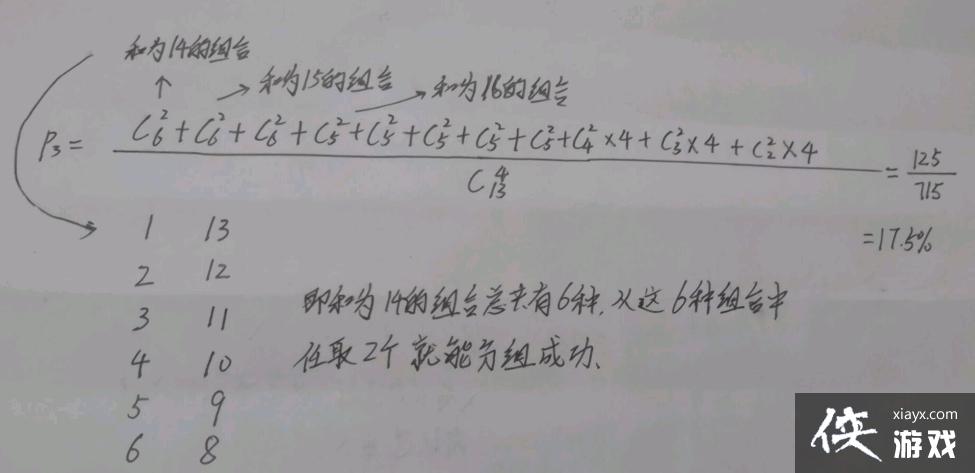 和为14的组合
和为15的组合
和为16的组合
P₃ = (C₆² + C₆² + C₆² + C₅² + C₅² + C₅² + C₅² + C₅² + C₄² × 4 + C₃² × 4 + C₂² × 4) / C₁₃⁴ = 125/715
=17.5%
1 13
2 12
3 11
4 10
5 9
6 8
即和为14的组合总共有6种,从这6种组合中
任取2个就能分组成功、
侠 xiayx.com
游戏